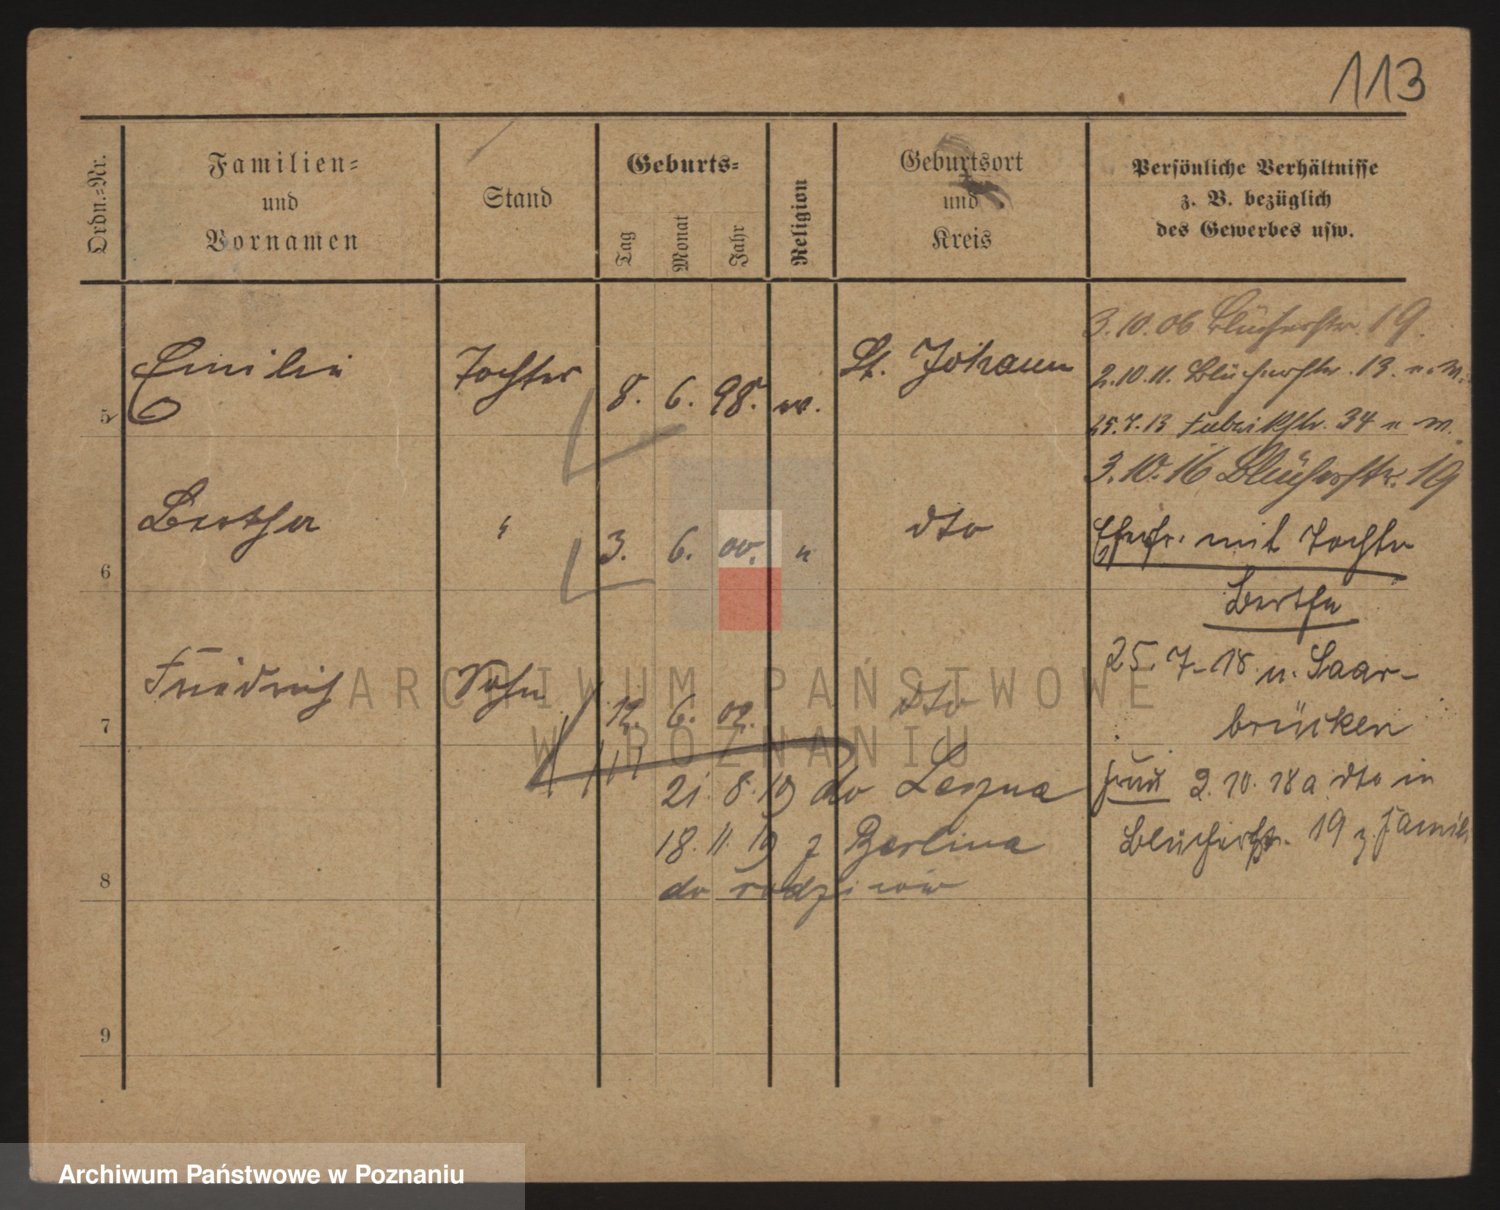 113
Ordn.-Nr.
Familien-
und
Vornamen
Stand
Geburts-
Tag
Monat
Jahr
Religion
Geburtsort
und
Kreis
Persönliche Verhältnisse
z. B. bezüglich
des Gewerbes usw.
5 Emilie Tochter 8. 6. 98. St. Johann
3.10.06 Blücherstr. 19.
2.10.11. Blücherstr. 13. n. W.
25.7.13 Fabrikstr. 34 n. W.
3.10.16 Blücherstr. 19
6 Bertha " 3. 6. 00. " dto
Ehefr. mit Tochter
Bertha
25. 7. 18 n. Saar-
brücken
7 Friedrich Sohn 12. 6. 02. dto
21. 8. 19 do Leszna
18. 11. 19 z Berlina
do rodziców
2. 10. 18 a dto in
Blücherstr. 19 z. Famil.
8
9
ARCHIWUM PAŃSTWOWE
W POZNANIU
Archiwum Państwowe w Poznaniu